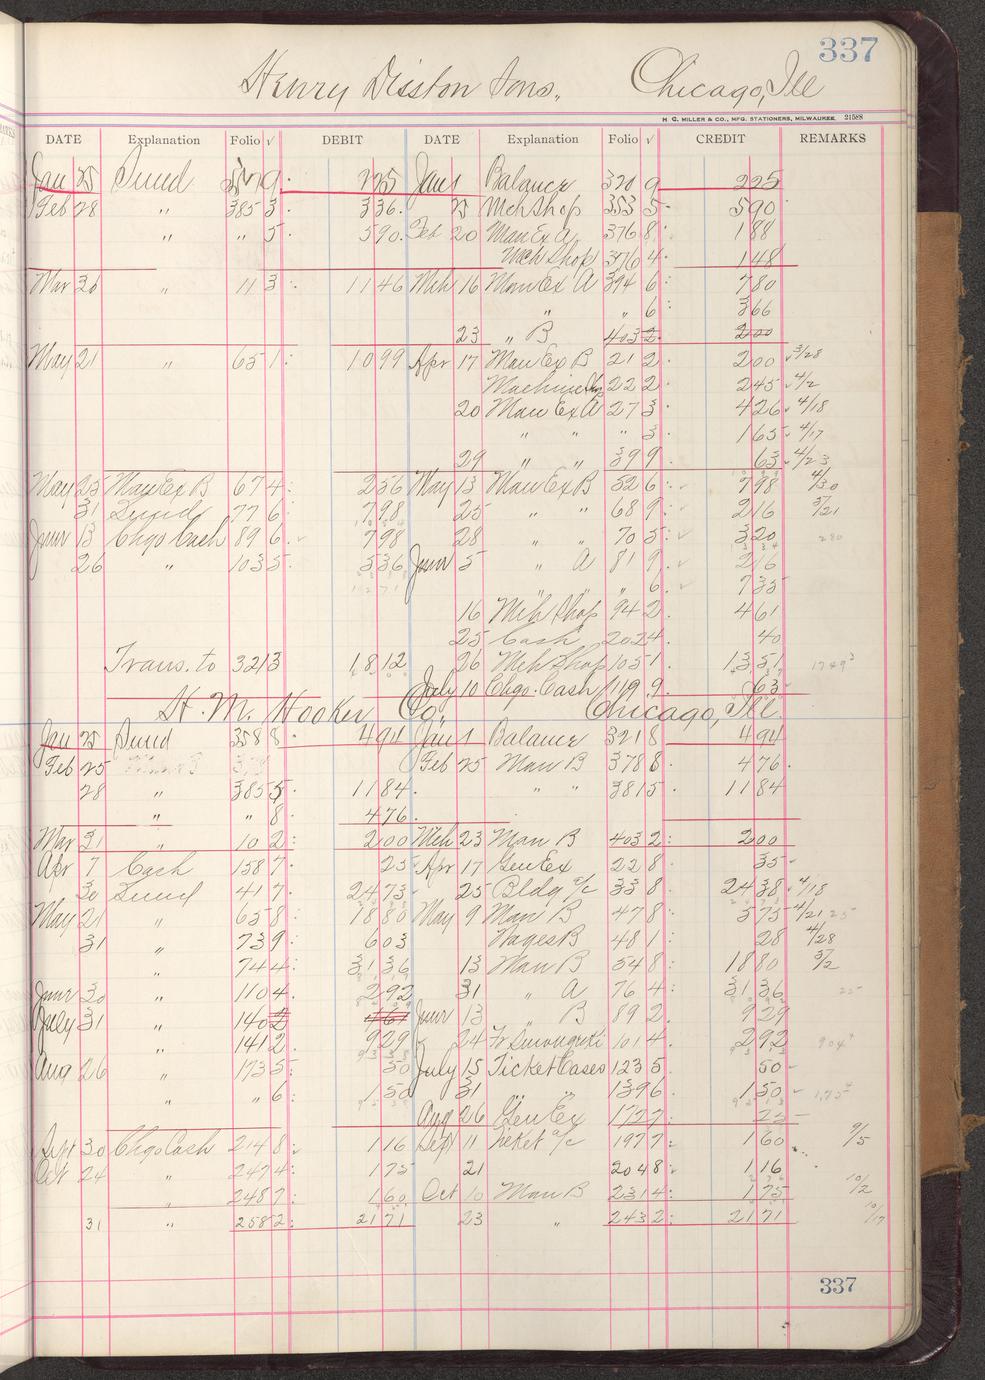 337
Henry Disston Sons, Chicago, Ill
H. G. MILLER & CO., MFG. STATIONERS, MILWAUKEE 21588
DATE Explanation Folio √ DEBIT DATE Explanation Folio √ CREDIT REMARKS
Jan 25 Sund 357 9 225 Jan 1 Balance 320 9 225
Feb 28 " 385 3 336 25 Mch Shop 353 5 590
" " 5 590 Feb 20 Man Ex A 376 8 188
Mch Shop 376 4 148
Mar 30 " 11 3 1146 Mch 16 Man Ex A 394 6 780
" " 6 366
23 " B 403 2 200
May 21 " 65 1 1099 Apr 17 Man Ex B 21 2 200 3/28
Machine Shop 22 2 245 4/2
20 Man Ex A 27 3 426 4/18
" " " 3 165 4/17
29 " " 39 9 63 4/23
May 25 Man Ex B 67 4 256 May 13 Man Ex B 52 6 798 4/30
31 Sund 77 6 798 25 " " 68 9 216 5/21
June 13 Chgo Cash 89 6 798 28 " " 70 5 320 280
26 " 103 5 536 June 5 " A 81 9 216
" " " 6 735
16 Mch Shop 94 2 461
25 Cash 202 4 40
Trans. to 321 3 1812 26 Mch Shop 105 1 1351 1749
July 10 Chgo. Cash 119 9 63
H. M. Hooker Co., Chicago, Ill.
Jan 25 Sund 358 8 494 Jan 1 Balance 321 8 494
Feb 25 Feb 25 Man B 378 8 476
28 " 385 5 1184 " " 381 5 1184
" " 8 476
Mar 31 " 10 2 200 Mch 23 Man B 403 2 200
Apr 7 Cash 158 7 25 Apr 17 Gen Ex 22 8 35
30 Sund 41 7 2473 25 Bldg a/c 33 8 2438 4/18
May 21 " 65 8 1880 May 9 Man B 47 8 575 4/21 25
31 " 73 9 603 Wages B 48 1 28 4/28
" 74 4 3136 13 Man B 54 8 1880 5/2
June 30 " 110 4 292 31 " A 76 4 3136
July 31 " 140 2 161 June 13 B 89 2 929
" 141 2 929 24 101 4 292 904
Aug 26 " 173 5 50 July 15 Ticket Cases 123 5 50
" " 6 150 31 " 139 6 150 175
Aug 26 Gen Ex 172 7 25
Sept 30 Chgo Cash 214 8 116 Sept 11 Ticket a/c 197 7 160 9/5
Oct 24 " 247 4 175 21 204 8 116
" 248 7 160 Oct 10 Man B 231 4 175 10/2
31 " 258 2 2171 23 " 243 2 2171 10/17
337